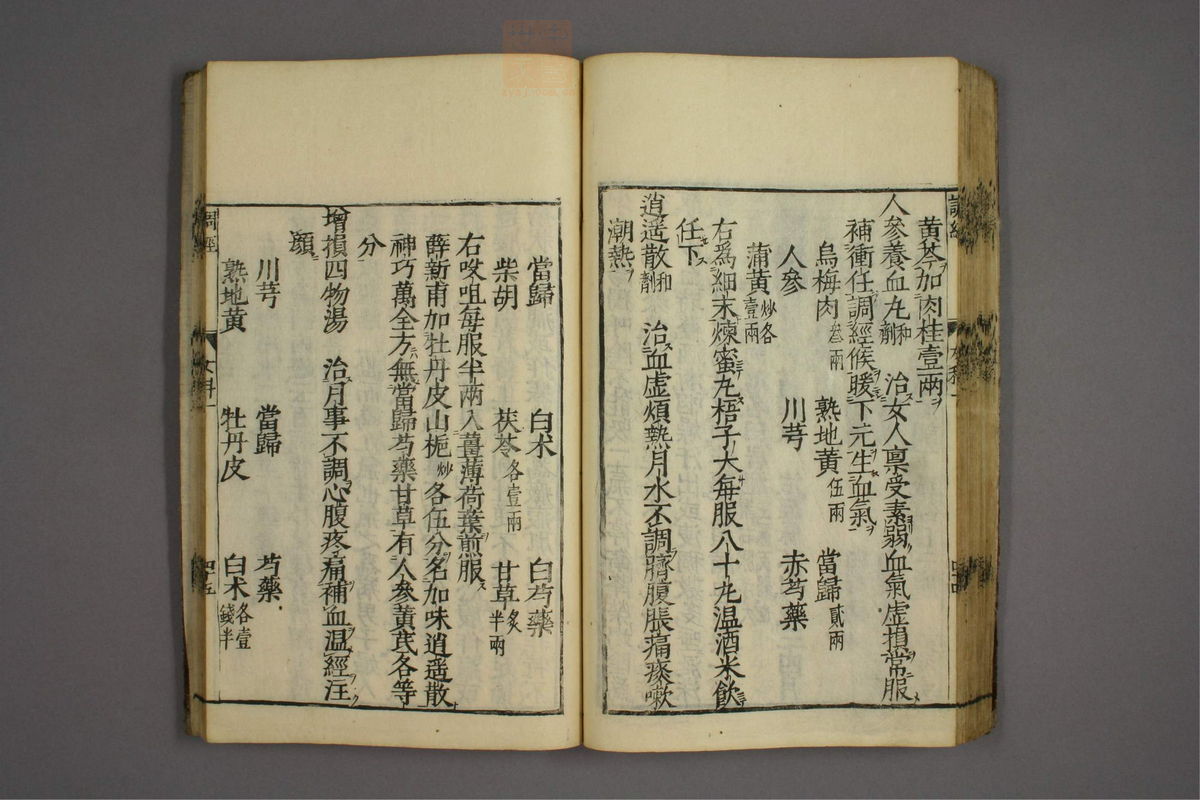 黃芩加肉桂壹兩
人參養血丸和劑 治女人稟受素弱血氣虛損常服
補衝任調經候暖下元生血氣
烏梅肉叁兩 熟地黃伍兩 當歸貳兩
人參 川芎 赤芍藥
蒲黃炒各壹兩
右爲細末煉蜜丸梧子大每服八十丸温酒米飲
任下
逍遥散和劑 治血虛煩熱月水不調臍腹脹痛痰嗽
潮熱
當歸 白术 白芍藥
柴胡 茯苓各壹兩 甘草炙半兩
右㕮咀每服半兩入薑薄荷葉煎服
薛新甫加牡丹皮山梔炒各伍分名加味逍遥散
神巧萬全方無當歸芍藥甘草有人參黃芪各等
分
增損四物湯 治月事不調心腹疼痛補血温經汪
顔
川芎 當歸 芍藥
熟地黃 牡丹皮 白术各壹錢半
調經 女科一 四十五